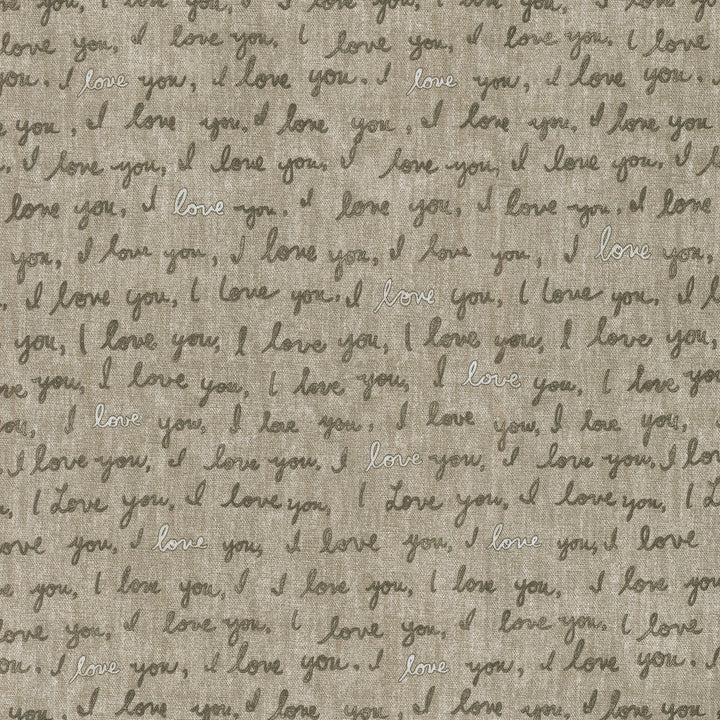 you, I love you, I love you, I love you,
love you, I love you, I love you, I love you. I love
you. I love you, I love you. I love you, I love you.
you, I love you. I love you, I love you, I love you
I love you, I love you, I love you, I love you, I
love you, I love you. I love you, I love you. I love
you, I love you, I love you, I love you, I love you,
I love you, I love you. I love you, I love you, I
you, I love you, I love you, I love you, I love you,
you, I love you, I love you, I love you, I love you
I love you, I love you. I love you, I love you,
I love you, I love you. I love you, I love you. I lov
I Love you, I love you, I Love you, I love you, I L
ove you, I love you, I love you, I love you, I love
you, I love you, I I love you, I love you, I love you
love you, I love you. I love you, I love you. I love
you. I love you, I love you. I love you, I love you.
you, I love you. I love you, I love you, I love you